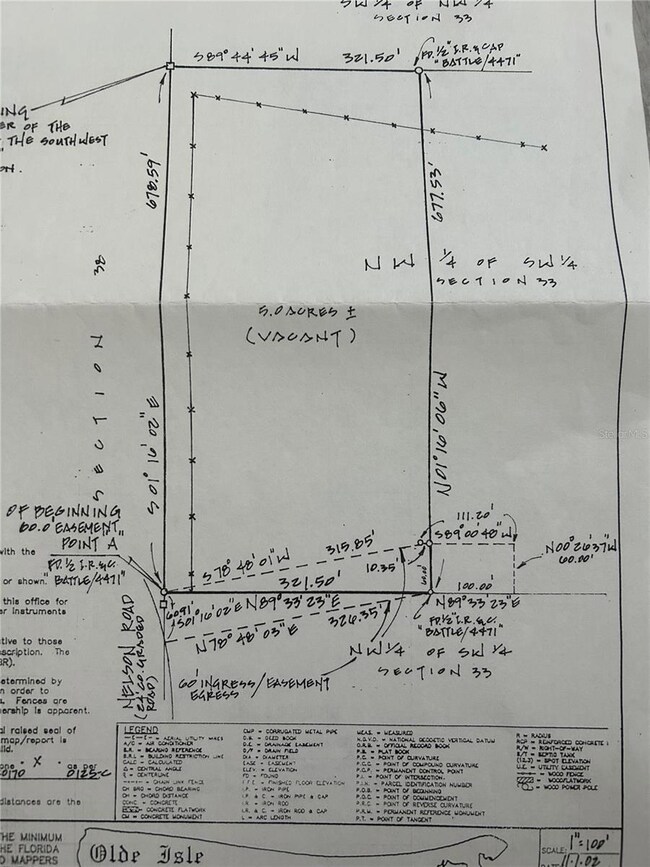 SW 1/4 OF NW 1/4
SECTION 33
S89°44'45"W
321.50'
FD. 1/2" I.R. & CAP
"BATTLE/4471"
ER OF THE
THE SOUTHWEST
678.59'
677.53'
NW 1/4 OF SW 1/4
SECTION 33
SECTION 38
5.0 ACRES ±
(VACANT)
S01°16'02"E
N01°16'06"W
OF BEGINNING
60.0' EASEMENT
POINT "A"
FD. 1/2" I.R. & C.
"BATTLE/4471"
with the
or shown.
this office for
er instruments
ative to those
scription. The
BR).
etermined by
in order to
Fences are
nership is apparent.
al raised seal of
map/report is
as per
0125-C
distances are the
S78°48'01"W
315.85'
10.35'
60.00'
111.20'
S89°00'48"W
N00°26'37"W
60.00'
321.50'
100.00'
N89°33'23"E
N89°33'23"E
60.91'
S01°16'02"E
N78°48'03"E
326.35'
FD. 1/2" I.R. & C.
"BATTLE/4471"
NELSON ROAD
(24' CO. GRADED
ROAD)
60' INGRESS/EASEMENT
EGRESS
NW 1/4 OF SW 1/4
SECTION 33
LEGEND
A/C = AIR CONDITIONER
B.R. = BEARING REFERENCE
B.R.L. = BUILDING RESTRICTION LINE
CALC = CALCULATED
CH BRG = CHORD BEARING
CH = CHORD DISTANCE
CONC. = CONCRETE
CM = CONCRETE MONUMENT
CMP = CORRUGATED METAL PIPE
D.B. = DEED BOOK
D.E. = DRAINAGE EASEMENT
D/F = DRAIN FIELD
DIA = DIAMETER
EASE = EASEMENT
ELEV. = ELEVATION
FD = FOUND
F.F.E. = FINISHED FLOOR ELEVATION
I.P. = IRON PIPE
I.P. & C. = IRON PIPE & CAP
I.R. = IRON ROD
I.R. & C. = IRON ROD & CAP
L = ARC LENGTH
MEAS. = MEASURED
N.G.V.D. = NATIONAL GEODETIC VERTICAL DATUM
O.R.B. = OFFICIAL RECORD BOOK
P.B. = PLAT BOOK
P.C. = POINT OF CURVATURE
P.C.C. = POINT OF COMPOUND CURVATURE
P.C.P. = PERMANENT CONTROL POINT
P.I. = POINT OF INTERSECTION
P.I.N. = PARCEL IDENTIFICATION NUMBER
P.O.B. = POINT OF BEGINNING
P.O.C. = POINT OF COMMENCEMENT
P.R.C. = POINT OF REVERSE CURVATURE
P.R.M. = PERMANENT REFERENCE MONUMENT
P.T. = POINT OF TANGENT
R = RADIUS
RCP = REINFORCED CONCRETE
R/W = RIGHT-OF-WAY
S/T = SEPTIC TANK
(12.3) = SPOT ELEVATION
U.E. = UTILITY EASEMENT
= WOOD FENCE
= WOOD POWER POLE
THE MINIMUM
THE FLORIDA
D MAPPERS
Olde Isle
SCALE: 1"=100'
DATE: 11-1-02